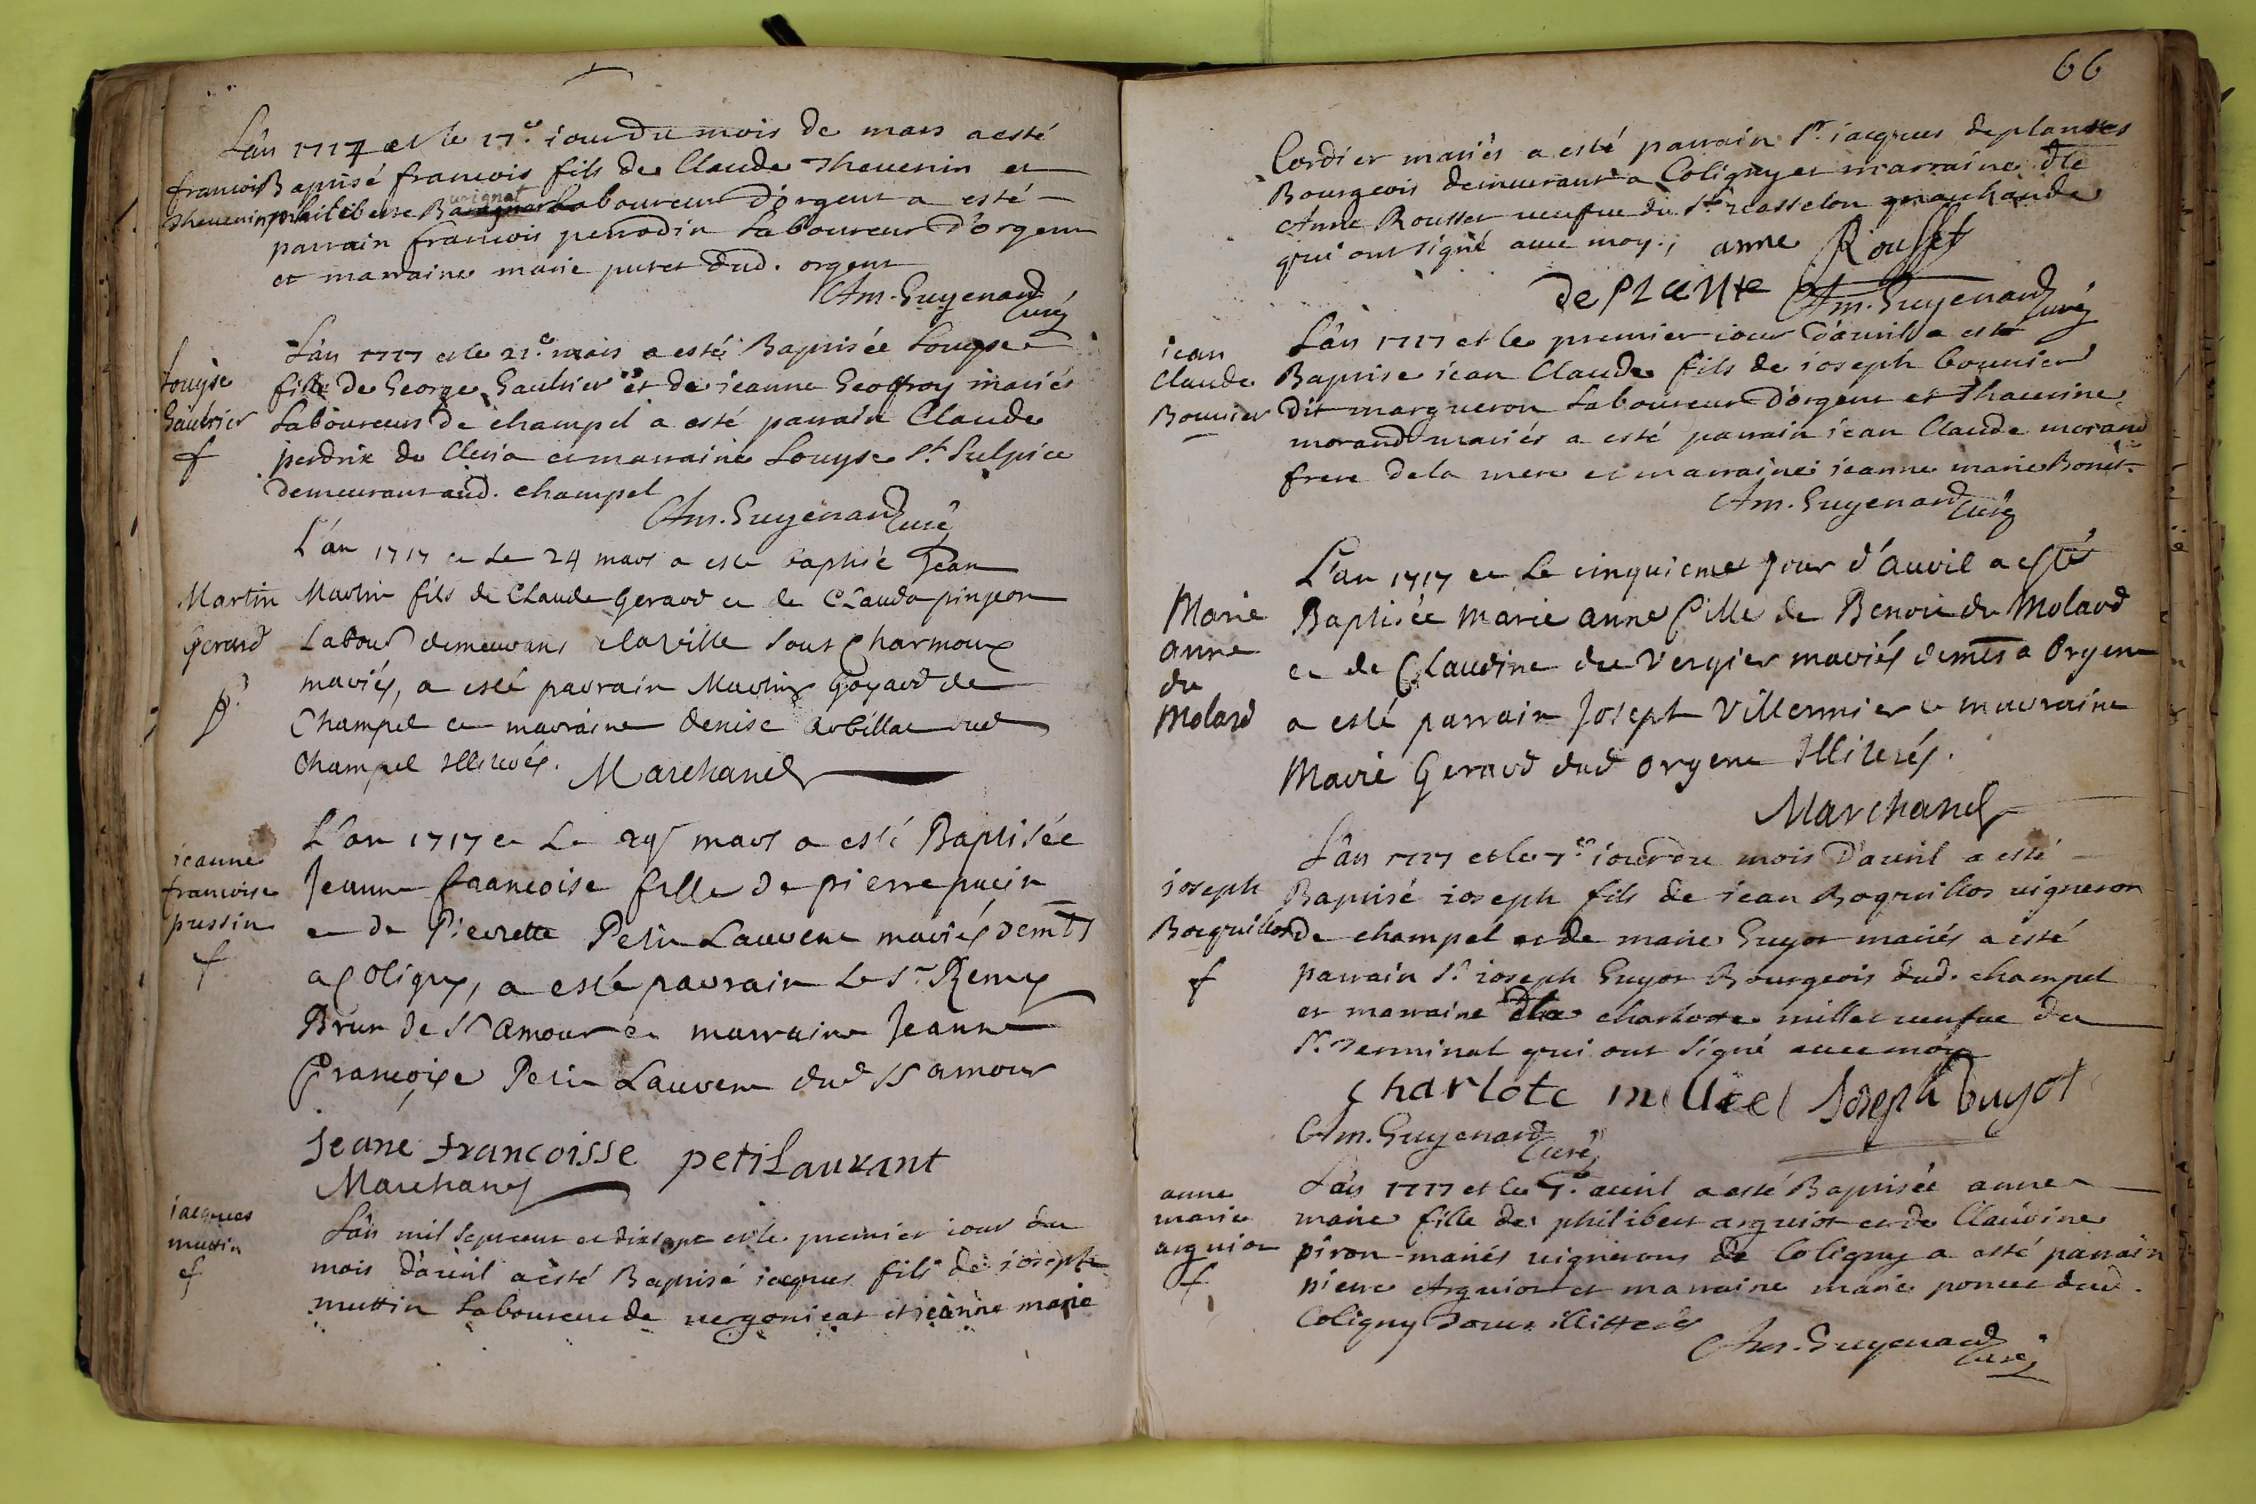 L'an 1717 et le 17.e iour du mois de mars a esté
francois Baptisé francois fils de Claude Thevenin et
Thevenin philiberte urignat Laboureur d'orgent a esté
parrain francois perrodin Laboureur d'orgent
et marraine marie putet dud. orgent
Am. Guyenard
Curé
L'an 1717 et le 21.e mars a esté Baptisée Louyse
Louyse
fille de George Gaultier et de jeanne Geoffroy mariés
Gaultier
Laboureurs de champel a esté parrain Claude
f
perdrix de Cleria et marraine Louyse St. Sulpice
demeurant aud. champel
Am. Guyenard
Curé
L'an 1717 et Le 24 mars a esté baptisé Jean
Martin
Martin fils de Claude Gerard et de Clauda pinjeon
Gerard
Labour. demeurans a laville sous Charmoux
mariés, a esté parrain Martin Goyard de
Champel et marraine denise arbillat dud
Champel Illiterés. Marchand
L'an 1717 et Le 29 mars a esté Baptisée
jeanne
francoise
Jeanne francoise fille de pierre pucin
pussin
et de Pierrette Petit Lauvent mariés demts
f
a Coligny, a esté parrain Le Sr. Remy
Brun de St Amour et marraine Jeanne
Françoise Petit Lauvent dud St amour
Jeane francoisse petiLaurant
Marchand
jacques
mutin
f
L'an mil Septcent et dixsept et le premier iour du
mois d'avril a esté Baptisé iacques fils de ioseph
muttin Laboureur de vergoniat et jeanne marie
66
Cordier mariés a esté parrain Sr. iacques deplantes
Bourgeois demeurant a Coligny et marraine dle
Anne Rousset veufve du Sr. casselon marchande
qui ont signé avec moy. anne Rousset
de Plante Am. Guyenard
Curé
L'an 1717 et le premier iour d'avril a esté
jean
Claude
Baptise jean Claude fils de joseph bouvier
Bouvier
dit margueron Laboureur d'orgent et Thaverine
morand mariés a esté parrain jean Claude morand
frere de la mere et marraine jeanne marie Bonet
Am. Guyenard
Curé
L'an 1717 et Le cinquieme Jour d'Avril a esté
Marie
anne
du
Molard
Baptisée Marie anne fille de Benoit du Molard
et de Claudine du Vergier mariés demts a Orgent
a esté parrain Joseph Villermier et marraine
Marie Gerard dud Orgent Illiterés.
Marchand
L'an 1717 et le 7.e iour du mois d'avril a esté
joseph
Baptisé joseph fils de jean Boquillot vigneron
Boquillot
de champel et de marie Guyot mariés a esté
f
parrain Sr. joseph Guyot Bourgeois dud. champel
et marraine dle charlotte millet veufve du
Sr. Terminal qui ont signé avec moy
charlote milliet Joseph Guyot
Am. Guyenard
Curé
L'an 1717 et le 7.e avril a esté Baptisée anne
anne
marie
arguiot
f
marie fille de philibert arguiot et de Claudine
piron mariés vignerons de Coligny a esté parrain
pierre Arguiot et marraine marie poncet dud.
Coligny tous illitterés
Am. Guyenard
Curé